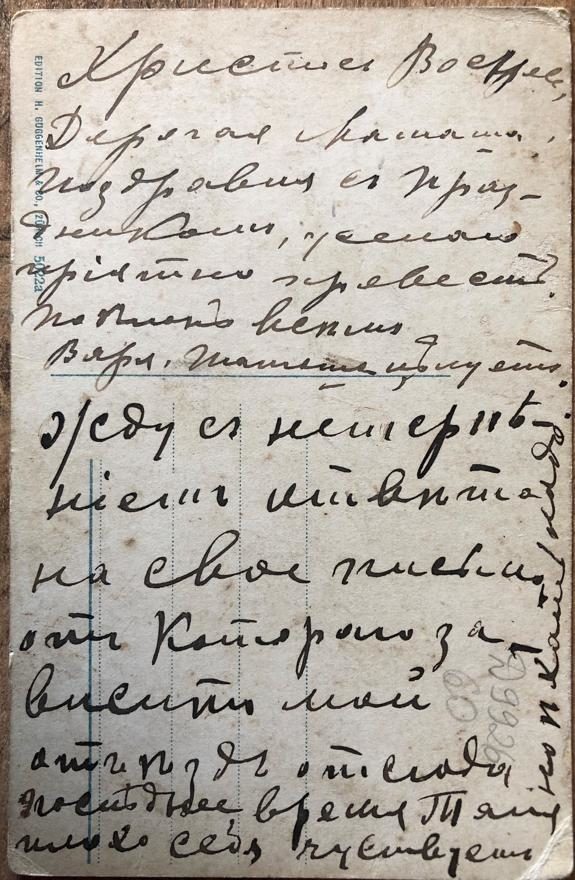 Христосъ Воскресе,
Дорогая Мамаша,
поздравляю съ праз-
дникомъ, желаю
пріятно провести.
поклонъ всѣмъ
Варя. Таташа цѣлуетъ.
Жду съ нетерпѣ-
ніемъ отвѣта
на свое письмо
отъ Котораго за
виситъ мой
отъѣздъ отсюда
последнее время Таня
плохо себя чувствуетъ
но ѣхать надо.
EDITION H. GUGGENHEIM & CO., ZÜRICH 5022a